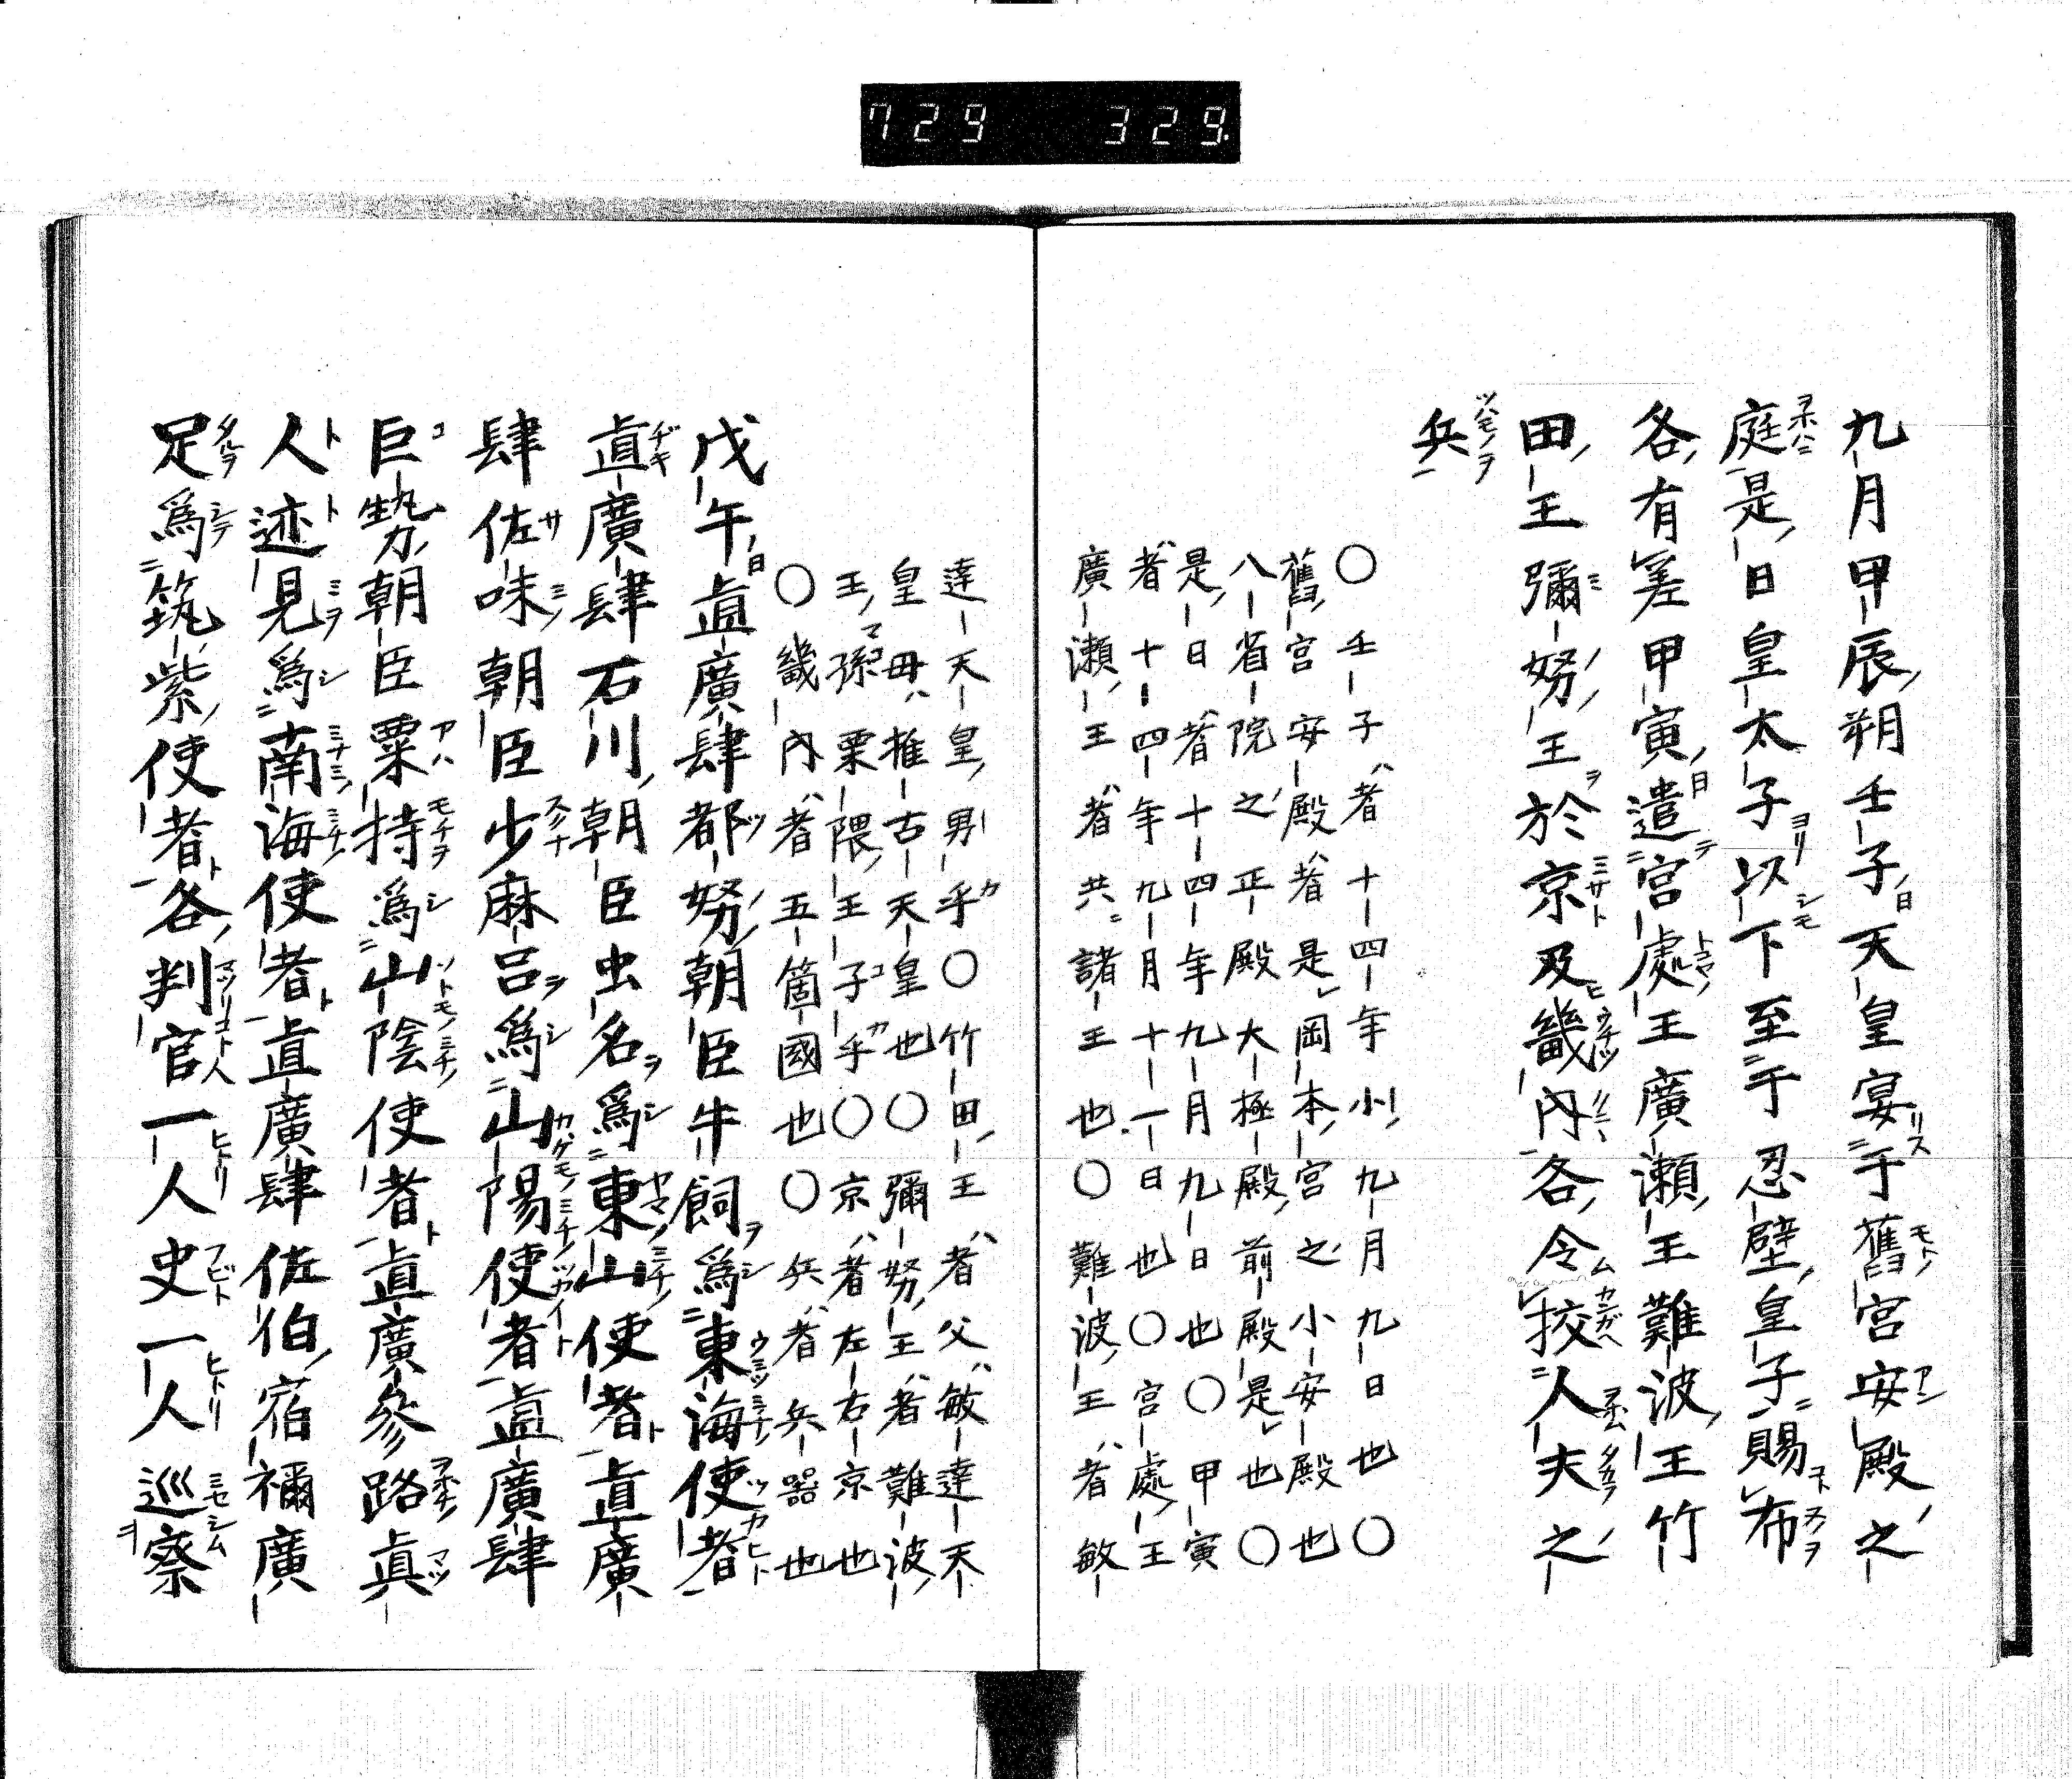 729 329
九月甲辰朔壬子天皇宴于舊宮安殿之
庭是日皇太子以下至于忍壁皇子賜布
各有差甲寅遣宮處王廣瀬王難波王竹
田王彌努王於京及畿内各令挍人夫之
兵
〇壬子者十四年小九月九日也〇
舊宮安殿者是岡本宮之小安殿也
八省院之正殿大極殿前殿是也〇
是日者十四年九月九日也〇甲寅
者十四年九月十一日也〇宮處王
廣瀬王者共諸王也〇難波王者敏
達天皇男乎〇竹田王者父敏達天
皇毋推古天皇也〇彌努王者難波
王孫栗隈王子乎〇京者左右京也
〇畿内者五箇國也〇兵者兵器也
戊午直廣肆都努朝臣牛飼爲東海使者
直廣肆石川朝臣虫名爲東山使者直廣
肆佐味朝臣少麻呂爲山陽使者直廣肆
巨勢朝臣粟持爲山陰使者直廣參路眞
人迹見爲南海使者直廣肆佐伯宿禰廣
足爲筑紫使者各判官一人史一人巡察